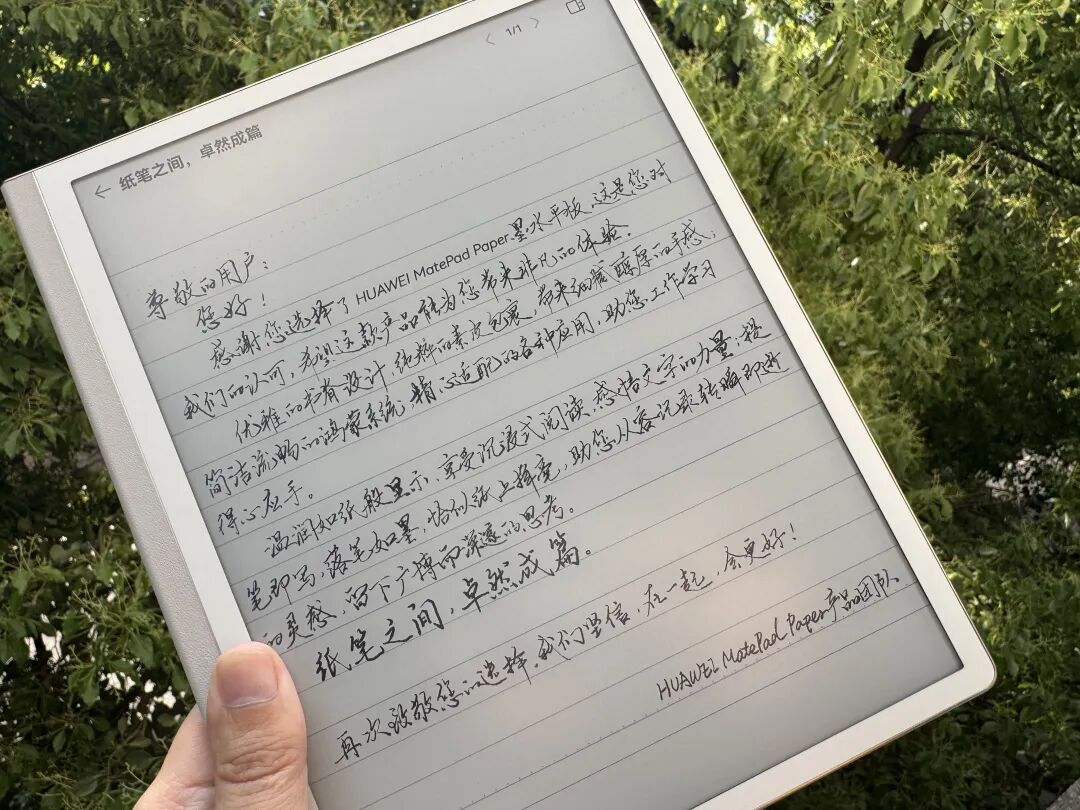 1/1
纸笔之间，卓然成篇
尊敬的用户：
您好！
感谢您选择了HUAWEI MatePad Paper墨水平板，这是您对
我们的认可，希望这款产品能为您带来非凡的体验。
优雅的书脊设计，纯粹的素皮包裹，带来细腻醇厚的手感；
简洁流畅的鸿蒙系统，精心适配的各种应用，助您工作学习
得心应手。
温润如纸般显示，享受沉浸式阅读，感悟文字的力量；提
笔即写，落笔如墨，恰似纸上挥毫，助您从容记录转瞬即逝
的灵感，留下广博而深邃的思考。
纸笔之间，卓然成篇。
再次致敬您的选择，我们坚信，在一起，会更好！
HUAWEI MatePad Paper产品团队